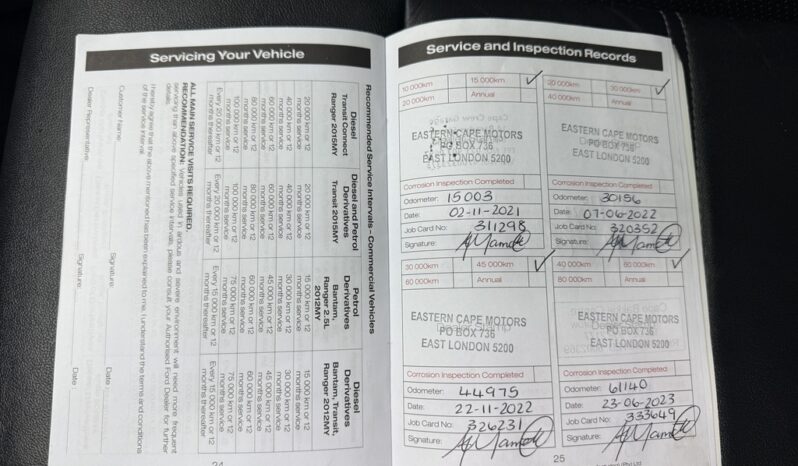 Servicing Your Vehicle
Recommended Service Intervals - Commercial Vehicles
Diesel
Transit Connect
Ranger 2015MY
20 000km or 12
months service
40 000 km or 12
months service
60 000 km or 12
months service
80 000 km or 12
months service
100 000 km or 12
months service
Every 20 000 km or 12
months thereafter
Diesel and Petrol
Derivatives
Transit 2015MY
20 000km or 12
months service
40 000 km or 12
months service
60 000 km or 12
months service
80 000 km or 12
months service
100 000 km or 12
months service
Every 20 000 km or 12
months thereafter
Petrol
Derivatives
Bantam,
Ranger 2.5L
2012MY
15 000 km or 12
months service
30 000 km or 12
months service
45 000 km or 12
months service
60 000 km or 12
months service
75 000 km or 12
months service
Every 15 000 km or 12
months thereafter
Diesel
Derivatives
Bantam, Transit,
Ranger 2012MY
15 000 km or 12
months service
30 000 km or 12
months service
45 000 km or 12
months service
60 000 km or 12
months service
75 000 km or 12
months service
Every 15 000 km or 12
months thereafter
ALL MAIN SERVICE VISITS REQUIRED.
RECOMMENDATION: Vehicles used in arduous and severe environment will need more frequent
servicing than above specified service intervals, please consult your Authorised Ford Dealer for further
details.
I hereby agree that the above mentioned has been explained to me. I understand the terms and conditions
of the service interval.
Customer Name: Signature: Date:
Dealer Representative: Signature: Date:
24
Service and Inspection Records
10 000km 15 000km
20 000km Annual
EASTERN CAPE MOTORS
PO BOX 736
EAST LONDON 5200
Corrosion Inspection Completed
Odometer: 15003
Date: 02-11-2021
Job Card No: 311298
Signature:
20 000km 30 000km
40 000km Annual
EASTERN CAPE MOTORS
PO BOX 736
EAST LONDON 5200
Corrosion Inspection Completed
Odometer: 30156
Date: 07-06-2022
Job Card No: 320352
Signature:
30 000km 45 000km
60 000km Annual
EASTERN CAPE MOTORS
PO BOX 736
EAST LONDON 5200
Corrosion Inspection Completed
Odometer: 44975
Date: 22-11-2022
Job Card No: 326231
Signature:
40 000km 60 000km
80 000km Annual
EASTERN CAPE MOTORS
PO BOX 736
EAST LONDON 5200
Corrosion Inspection Completed
Odometer: 61140
Date: 23-06-2023
Job Card No: 333649
Signature:
25